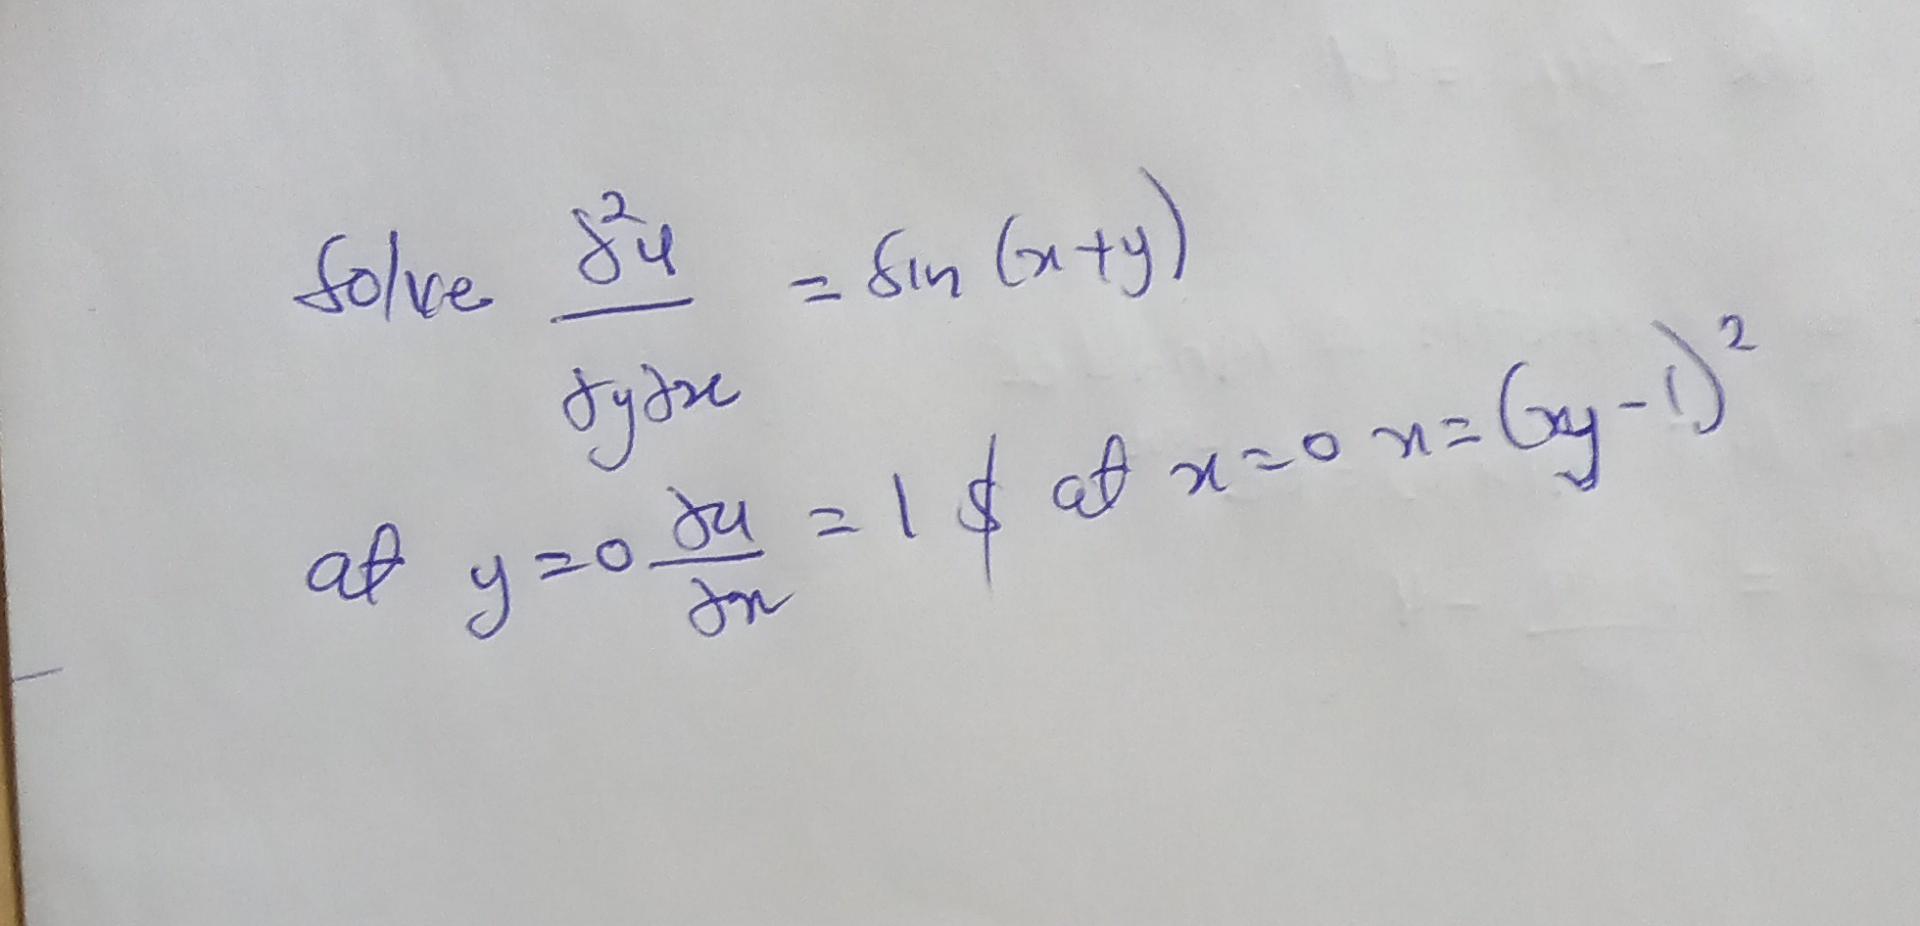 Solve ∂²u/∂y∂x = sin (x+y)
at y=0 ∂u/∂x = 1 & at x=0 x= (xy-1)²